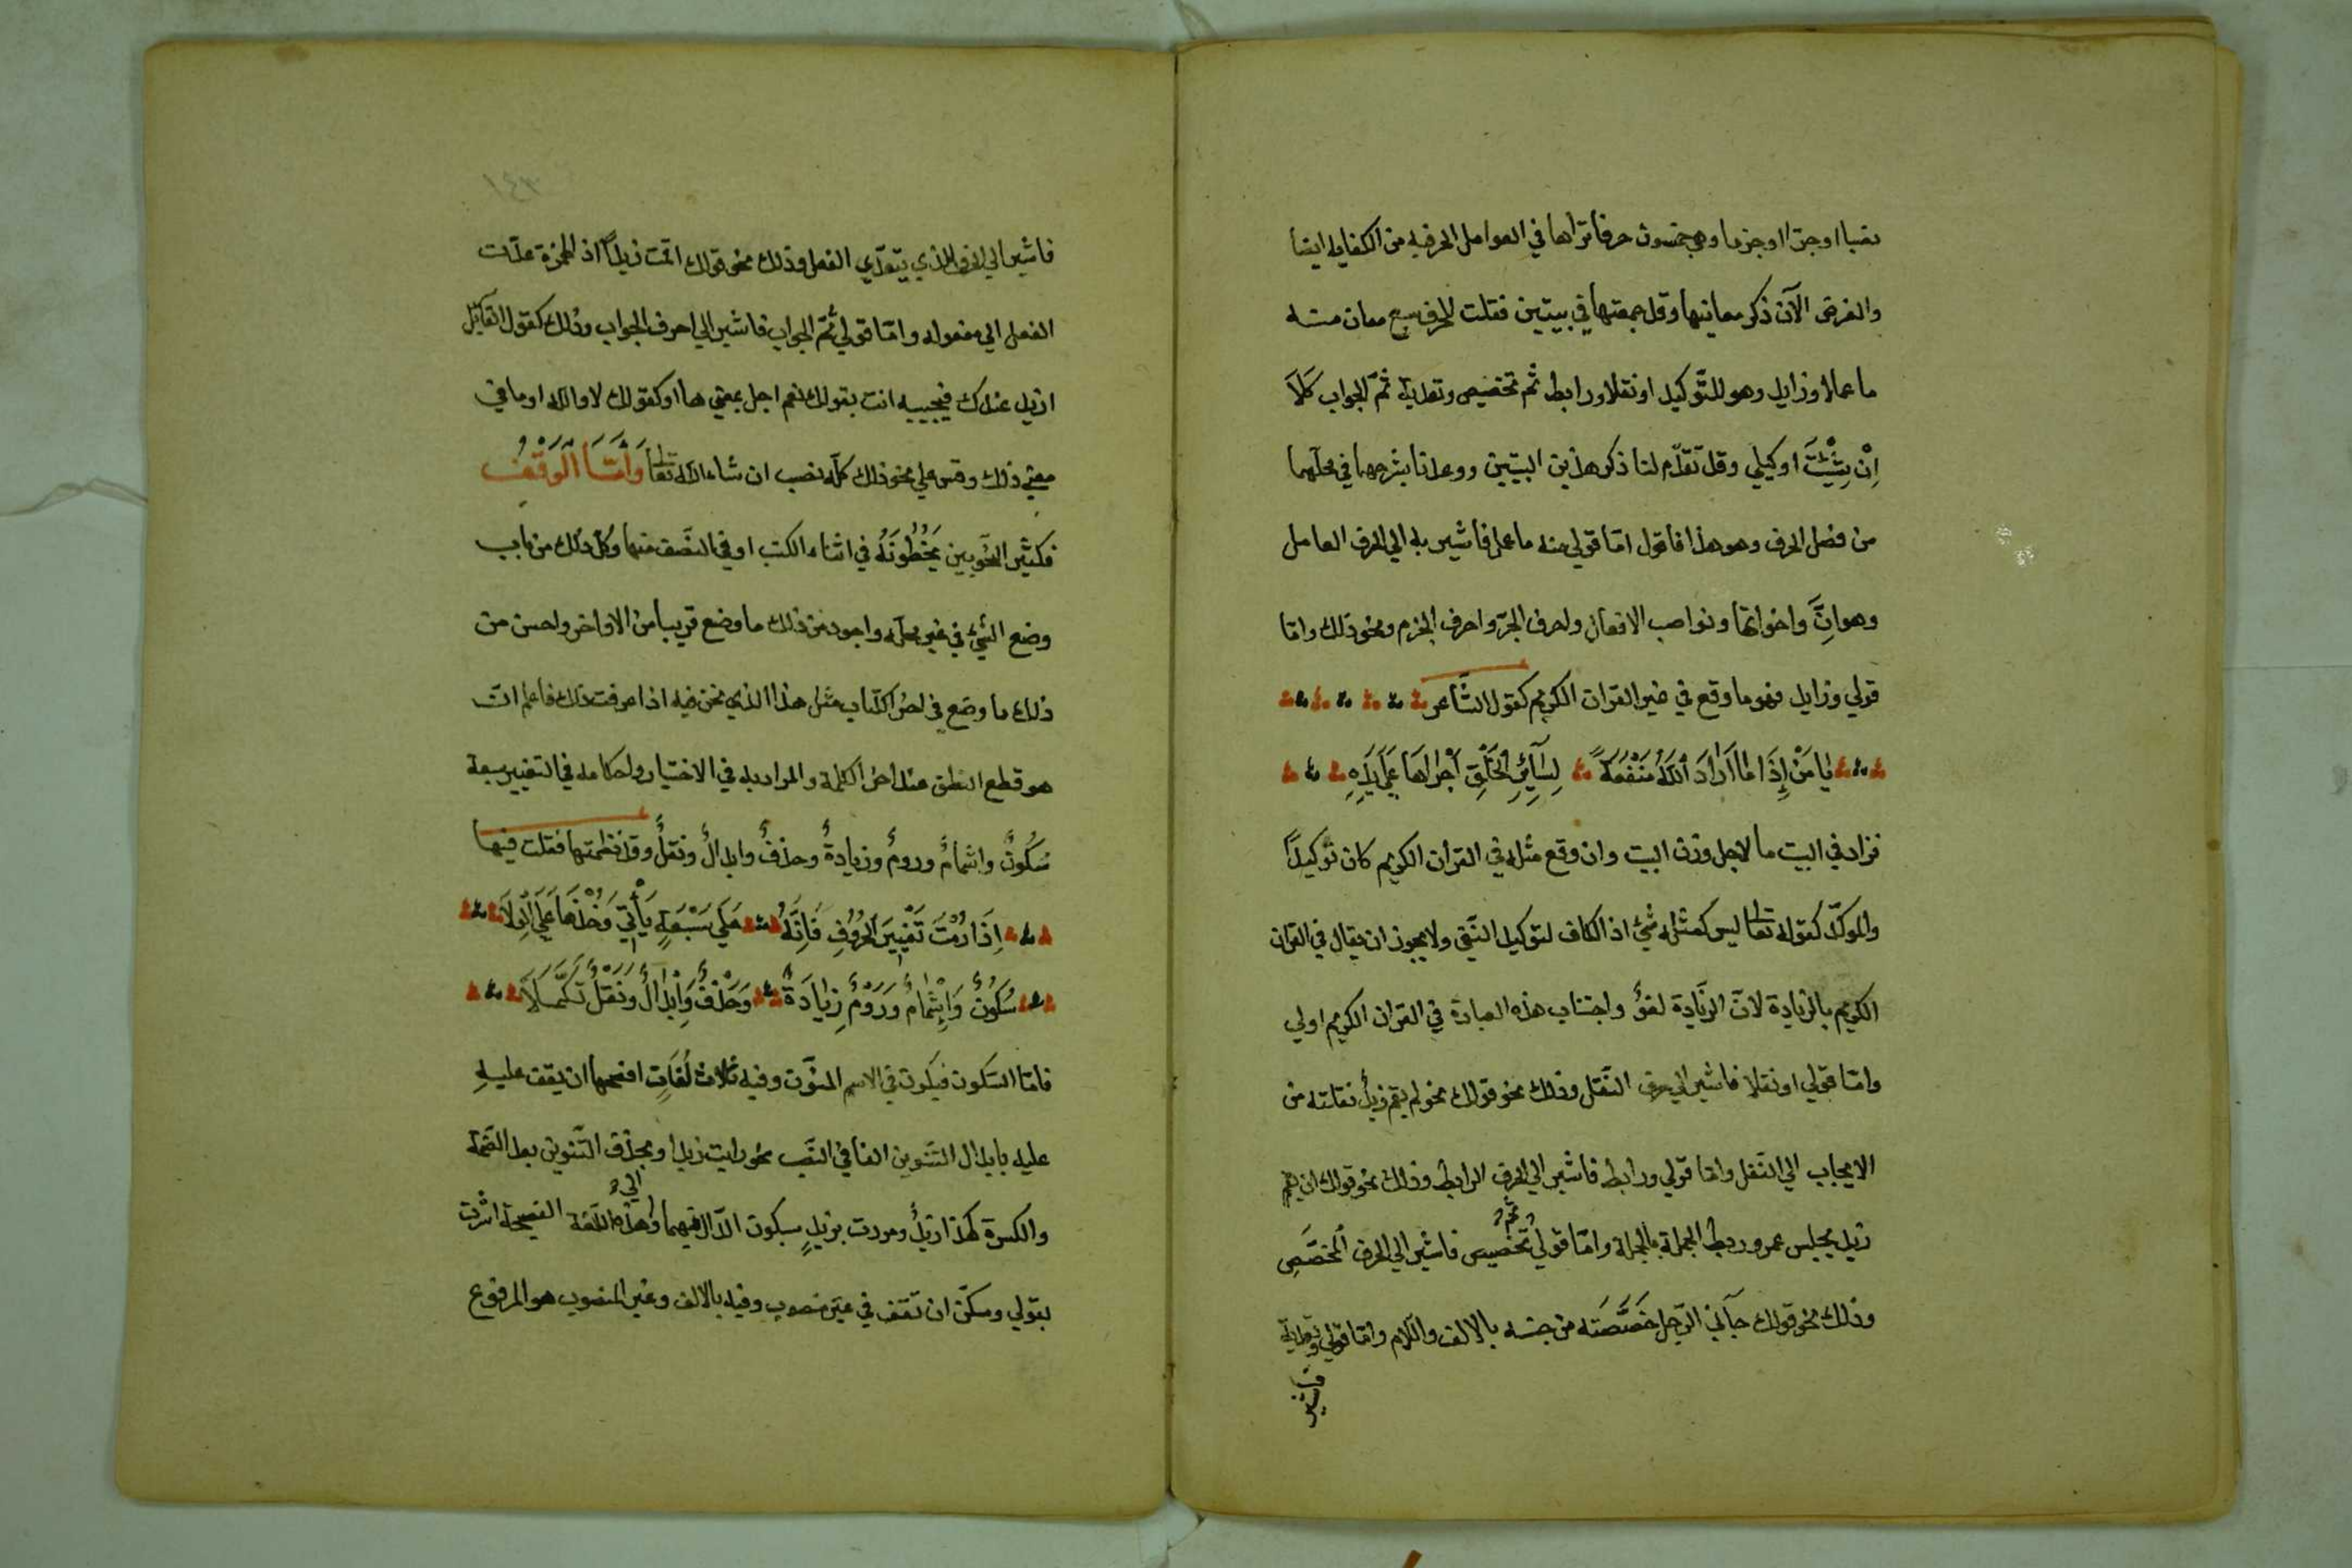 نصبا او جرّا او جزما وهي خمسون حرفا تراها في العوامل الحرفيه من الكفايه ايضا
والغرض الآن ذكر معانيها وقد جمعتها في بيتين فقلت للحرف سبع معان منه
ما عملا وزايد وهو للتّوكيد او نقلا ورابط ثم تخصيص وتعدية ثمّ الجواب كَلَا
اِنْ شِئْتَ اوكيلي وقد تقدّم لنا ذكر هذين البيتين ووعدنا بشرحهما في محلّهما
من فصل الحرف وهو هذا فاقول امّا قولي منه ما عملا فاشير به الي الحرف العامل
وهو اِنَّ واخواتها ونواصب الافعال واحرف الجرّ واحرف الجزم ونحو ذلك وامّا
قولي وزايد فهو ما وقع في غير القران الكريم كقول الشّاعر
يَا مَنْ إِذَا مَا اَرَادَ اللّٰهُ مَنْفَعَةً لِسَآئِرِ الْخَلْقِ اَجْرَاهَا عَلَي يَدِهِ
فزاد في البيت ما لاجل وزن البيت وان وقع مثله في القران الكريم كان توكيداً
والموكّد كقوله تعالى ليس كمثله شيئ اذ الكاف لتوكيد النّفي ولا يجوز ان يقال في القران
الكريم بالزيادة لانّ الزّيادة لغوٌ واجتناب هذه العبارة في القران الكريم اولي
وامّا قولي او نقلا فاشير الي حرف النّقل وذلك نحو قولك نحو لم يقم زيدٌ نقلته من
الايجاب الي النّفي وامّا قولي ورابط فاشير الي الحرف الرابط وذلك نحو قولك ان يقم
زيد يجلس عمرو ربط الجملة بالجملة وامّا قولي ثم تخصيص فاشير الي الحرف المخصّصِ
وذلك نحو قولك جآني الرّجل خَصَّصَته من جنسه بالالف واللّام وامّا قولي وتعدية
فاشير
١٤٣
فاشير الي الحرف الذي يتعدّي الفعل وذلك نحو قولك اقمت زيداً اذ الهمزة عدّت
الفعل الي مفعوله وامّا قولي ثمّ الجواب فاشير الي احرف الجواب وذلك كقول القايل
ازيد عندك فيجيبه انت بقولك نعم اجل بمعني ها او كقولك لا والله او ما في
معني ذلك وقس علي نحو ذلك كلّه نصب ان شاء الله تعالى وَأَمَّا الْوَقْفُ
فكثير النّحويين يَخُطُّونَهُ في اثناء الكتب او في النصّف منها وكلّ ذلك من باب
وضع الشّيئ في غير محلّه واجود من ذلك ما وضع قريبا من الاواخر واحسن من
ذلك ما وضع في اخر الكتاب مثل هذا الذي نحن فيه اذا عرفت ذلك فاعلم انّ
هو قطع النطق عند اخر الكلمة والمراد به في الاختيار واحكامه في التغيير سبعة
سُكُونٌ واشمامٌ ورومٌ وزيادةٌ وحذفٌ وابدالٌ ونقلٌ وقد نظمتها فقلت فيها
اِذَا رُمْتَ تَغْيِيرَ الْحُرُوفِ فَاِنَّهُ عَلَي سَبْعَةٍ يَأْتِي وَخُذْهَا عَلَي الْوِلَا
سُكُونٌ وَاِشْمَامٌ وَرَوْمٌ زِيَادَةٌ وَحَذْفٌ وَاِبْدَالٌ ونَقْلٌ تَكَمَّلَا
فامّا السّكون فيكون في الاسم المنوّن وفيه ثلاث لُغَاتٍ افصحها ان يقف عليهِ
عليه بابدال التنوين الفا في النّصب نحو رايت زيدا وبحذف التّنوين بعد الضّمّة
والكسرة كهذا زيدٌ ومررت بزيدٍ بسكون الدّال فيهما والي هذه اللّغة الفصيحة اشرت
بقولي وسكّن ان تقف في غير منصوب وفيه بالالف وغير المنصوب هو المرفوع